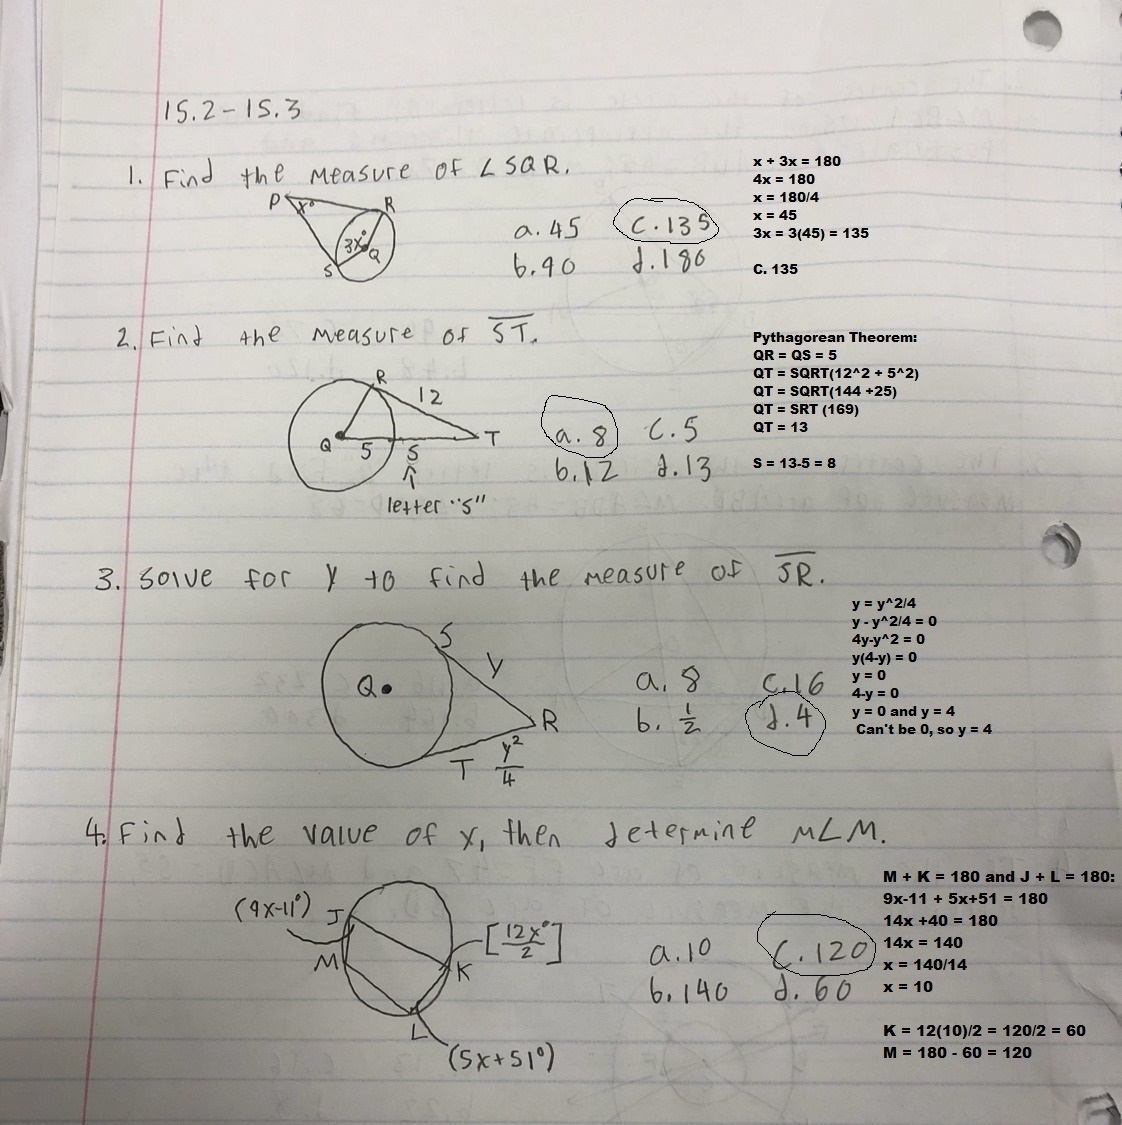 15.2-15.3
1. Find the measure of ∠SQR.
P x° R
3x° Q
S
a. 45 c. 135
b. 90 d. 180
x + 3x = 180
4x = 180
x = 180/4
x = 45
3x = 3(45) = 135
C. 135
2. Find the measure of S̅T̅.
R 12
Q 5 S T
letter "S"
a. 8 c. 5
b. 12 d. 13
Pythagorean Theorem:
QR = QS = 5
QT = SQRT(12^2 + 5^2)
QT = SQRT(144 +25)
QT = SRT (169)
QT = 13
S = 13-5 = 8
3. Solve for y to find the measure of S̅R̅.
S y
Q
R
T y²/4
a. 8 c. 16
b. 1/2 d. 4
y = y^2/4
y - y^2/4 = 0
4y-y^2 = 0
y(4-y) = 0
y = 0
4-y = 0
y = 0 and y = 4
Can't be 0, so y = 4
4. Find the value of x, then determine m∠M.
(9x-11°) J
M K [12x°/2]
L
(5x+51°)
a. 10 c. 120
b. 140 d. 60
M + K = 180 and J + L = 180:
9x-11 + 5x+51 = 180
14x +40 = 180
14x = 140
x = 140/14
x = 10
K = 12(10)/2 = 120/2 = 60
M = 180 - 60 = 120